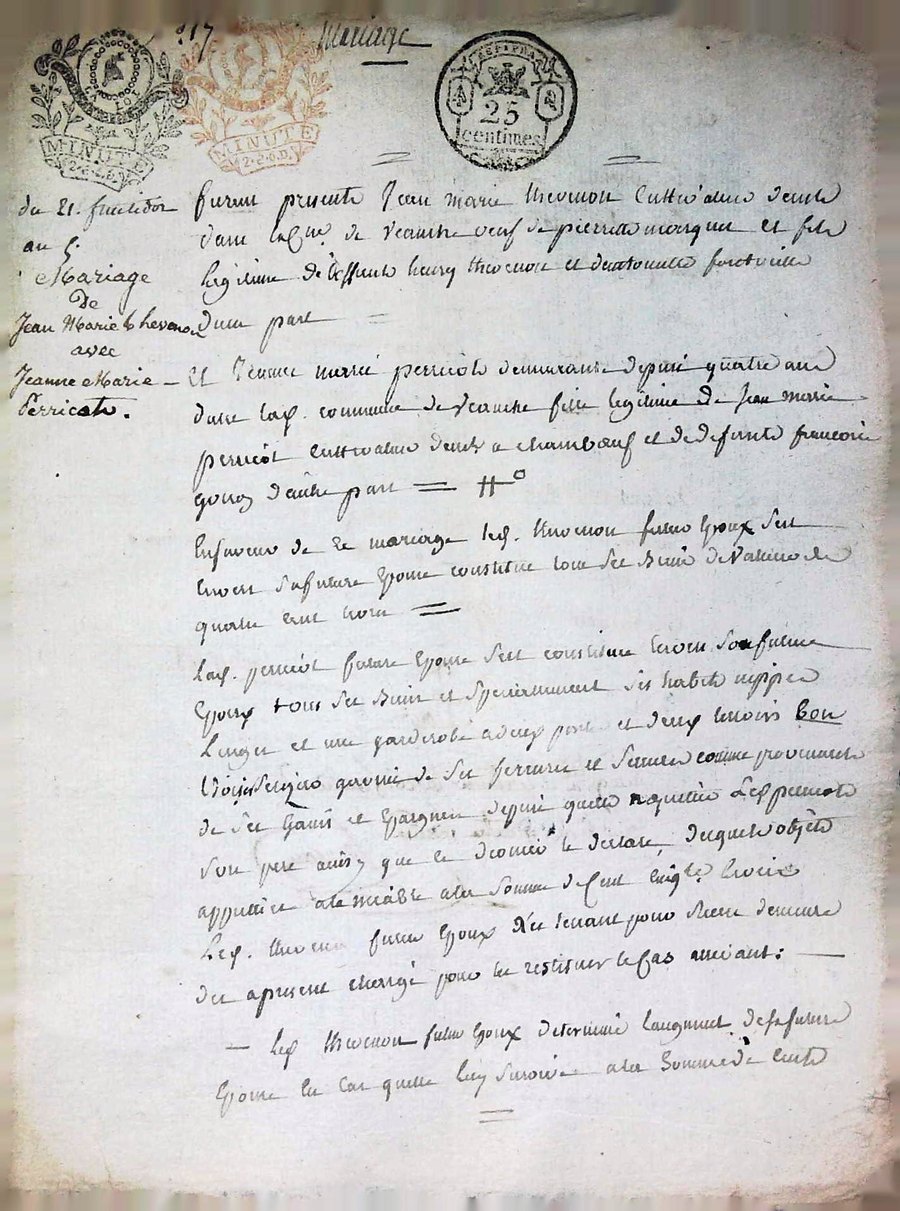 217
Mariage
MINUTE
MINUTE
25
centimes
du 21. fructidor
an 5
Mariage
De
Jean Marie thevenon
avec
Jeanne Marie
Perricot.
furent presents Jean marie thevenon Cultivateur demt
dans la Cne. de veauche veuf de pierrette et fils
legitime de deffunts henry thevenon et d'antoinette
d'une part
Et Jeanne marie perricot demeurante depuis quatre ans
dans lad. commune de veauche fille legitime de Jean marie
perricot cultivateur demt a chambeuf et de defunte francoise
d'autre part
En faveur de ce mariage led. thevenon futur Epoux s'est
Envers sa future Epouse constitué tous ses Biens de valleur de
quatre cent
Lad. perricot future Epouse s'est constitué Envers son futur
Epoux tous ses Biens et specialement ses habits nippes
Linges et une garderobe a deux portes et deux Bon
garnie de ses ferrures et serrures comme provenants
de ses Gains et Epargnes depuis quelle a quitté Led perricot
son pere ainsy que ce dernier le declare, desquels objets
a la somme de Cent
Led. thevenon futur Epoux s'en tenant pour demeure
des apresent chargé pour les restituer le Cas arrivant:
Led thevenon futur Epoux determine l'augment de sa future
Epouse En Cas quelle luy survive a la Somme de